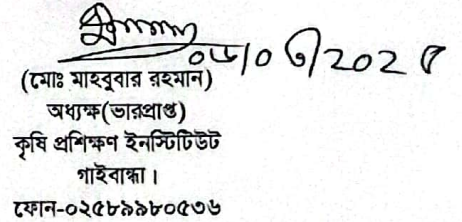 ০৬/০৩/2025
(মোঃ মাহবুবার রহমান)
অধ্যক্ষ(ভারপ্রাপ্ত)
কৃষি প্রশিক্ষণ ইনস্টিটিউট
গাইবান্ধা।
ফোন-০২৫৮৯৯৮০৫৩৬